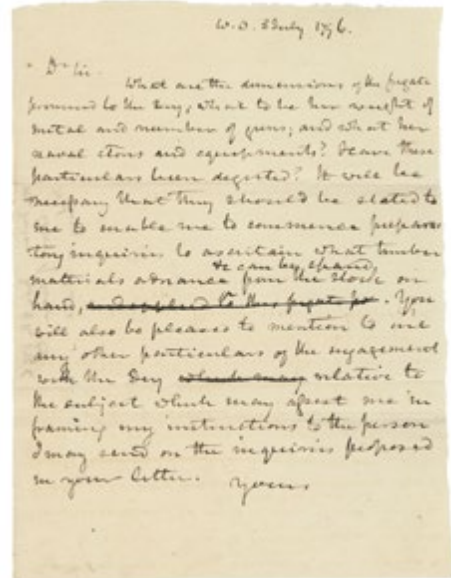 W.O. 8 July 1796.
Dr Sir.
What are the dimensions of the frigate
promised to the Dey, what to be her weight of
metal and number of guns; and what her
naval stores and equipments? Have these
particulars been digested? It will be
necessary that they should be stated to
me to enable me to commence prepara
tory inquiries to ascertain what timber
materials ordnance &c can be spared
from the stock on
hand, and applied to this frigate. You
will also be pleased to mention to me
any other particulars of the engagement
with the Dey which may relative to
the subject which may affect me in
framing my instructions to the person
I may send on the inquiries proposed
in your letter. Yours